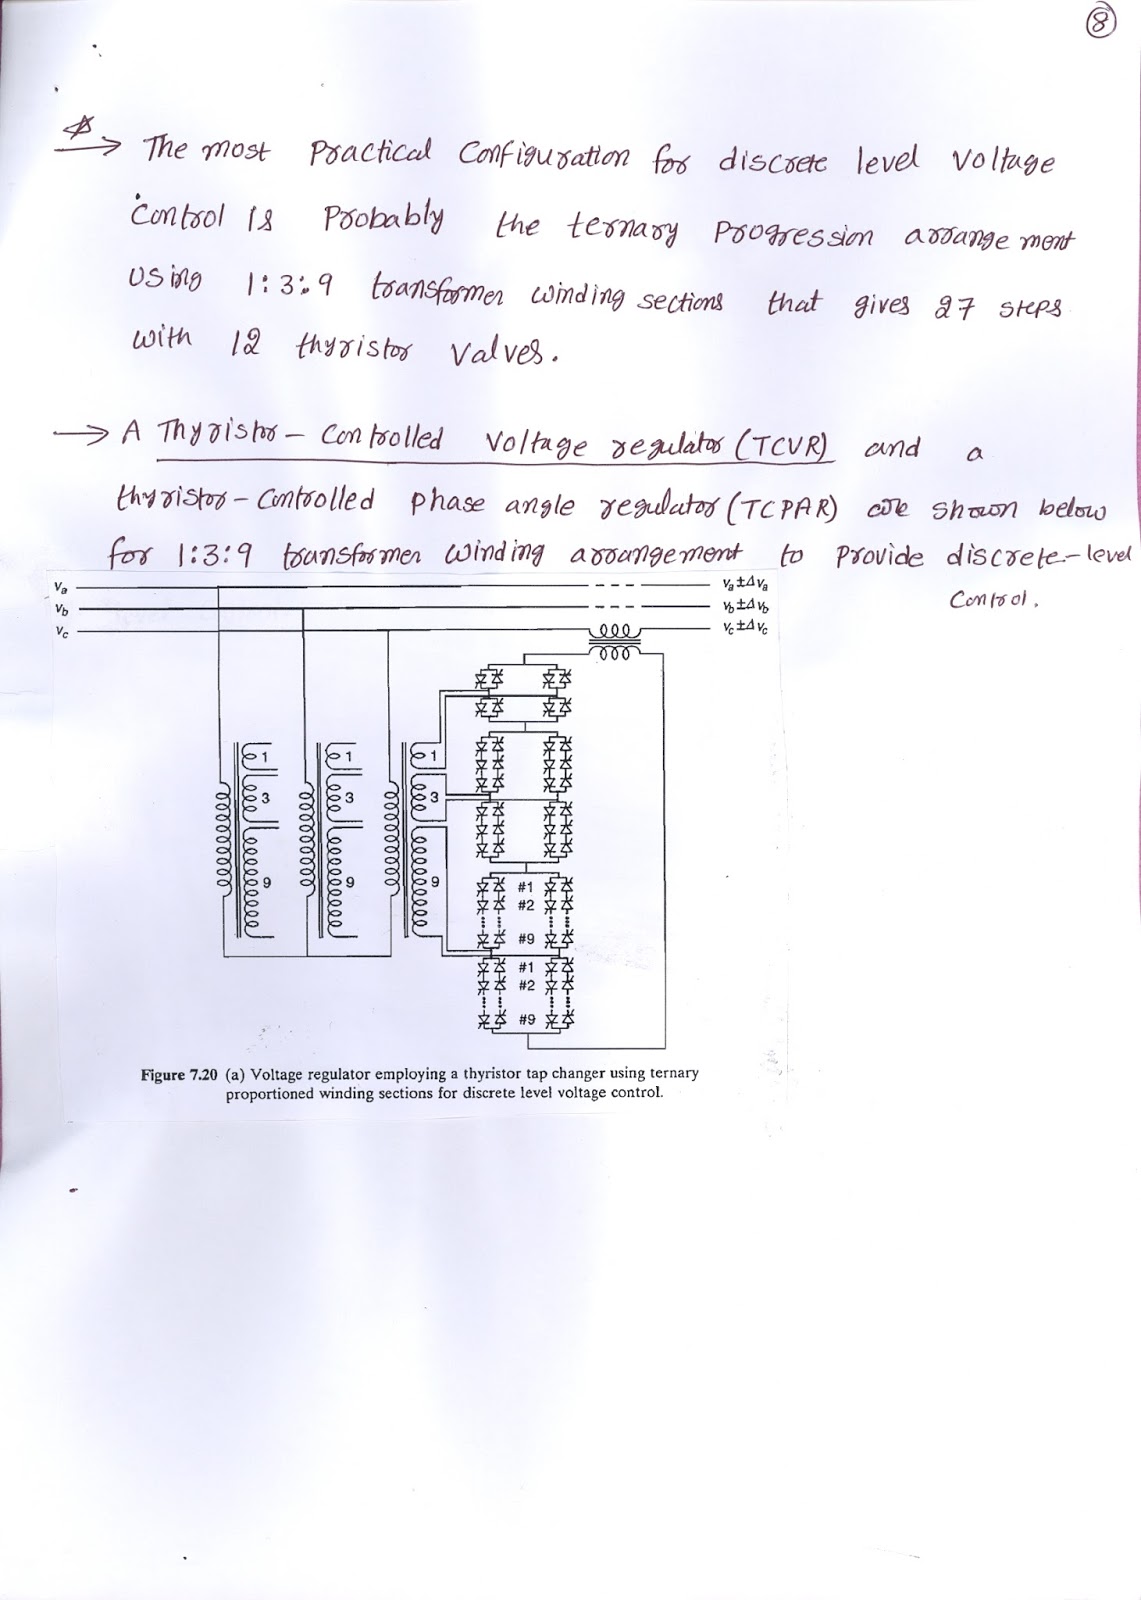 8
The most Practical Configuration for discrete level voltage
control is Probably the ternary Progression arrangement
using 1:3:9 transformer winding sections that gives 27 steps
with 12 thyristor valves.
→ A Thyristor - Controlled voltage regulator (TCVR) and a
thyristor - Controlled phase angle regulator (TCPAR) are shown below
for 1:3:9 transformer winding arrangement to provide discrete-level
Control.
Va
Va±ΔVa
Vb
Vb±ΔVb
Vc
Vc±ΔVc
1 1 1
3 3 3
9 9 9
#1
#2
#9
#1
#2
#9
Figure 7.20 (a) Voltage regulator employing a thyristor tap changer using ternary
proportioned winding sections for discrete level voltage control.